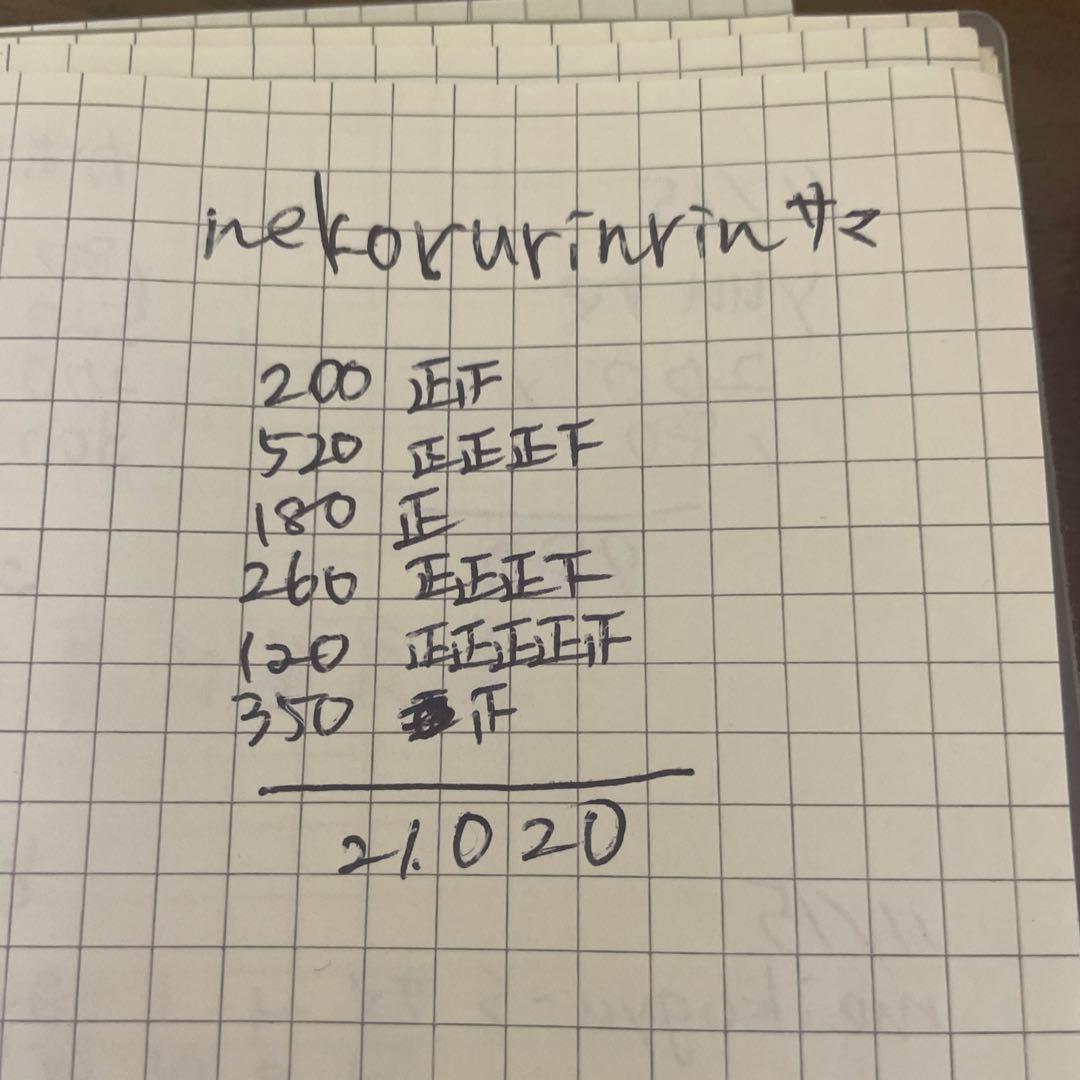 nekorurinrinサマ
200 正正
520 正正正下
180 正
260 正正正下
120 正正正正正
350 正
21.020